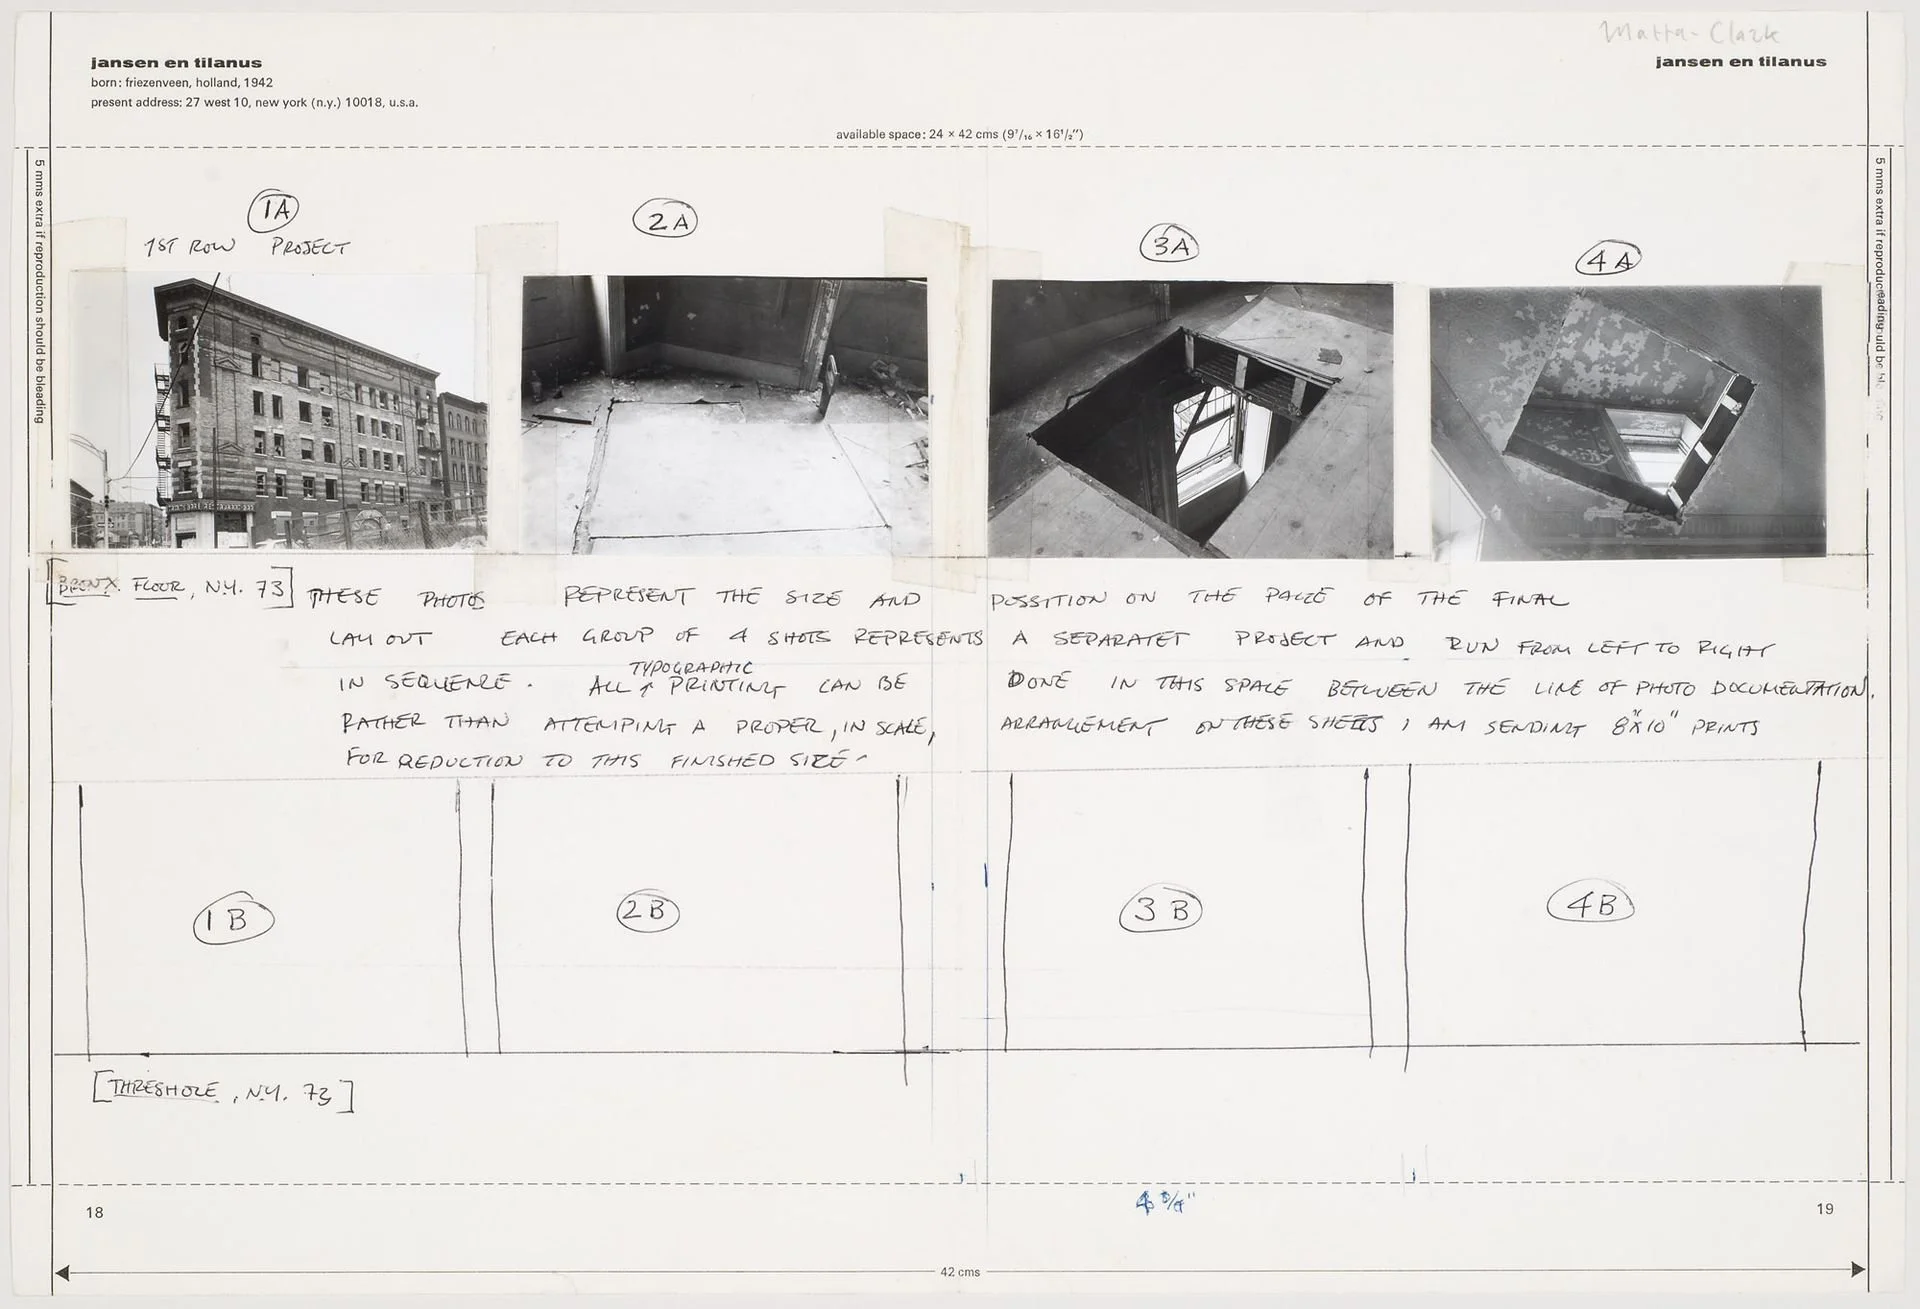 Matta-Clark
jansen en tilanus
born: friezenveen, holland, 1942
present address: 27 west 10, new york (n.y.) 10018, u.s.a.
jansen en tilanus
available space: 24 × 42 cms (9⁷/₁₆ × 16¹/₂")
5 mms extra if reproduction should be bleading
1A
1ST ROW PROJECT
2A
3A
4A
5 mms extra if reproduc eading uld be
[BRONX FLOOR, N.Y. 73] THESE PHOTOS REPRESENT THE SIZE AND POSSITION ON THE PAGE OF THE FINAL
LAY OUT EACH GROUP OF 4 SHOTS REPRESENTS A SEPARATET PROJECT AND RUN FROM LEFT TO RIGHT
IN SEQUENCE. ALL TYPOGRAPHIC PRINTING CAN BE DONE IN THIS SPACE BETWEEN THE LINE OF PHOTO DOCUMENTATION.
RATHER THAN ATTEMPING A PROPER, IN SCALE, ARRANGEMENT ON THESE SHEETS I AM SENDING 8"X10" PRINTS
FOR REDUCTION TO THIS FINISHED SIZE-
1B
2B
3B
4B
[THRESHOLE, N.Y. 73]
4 3/4"
18
19
42 cms